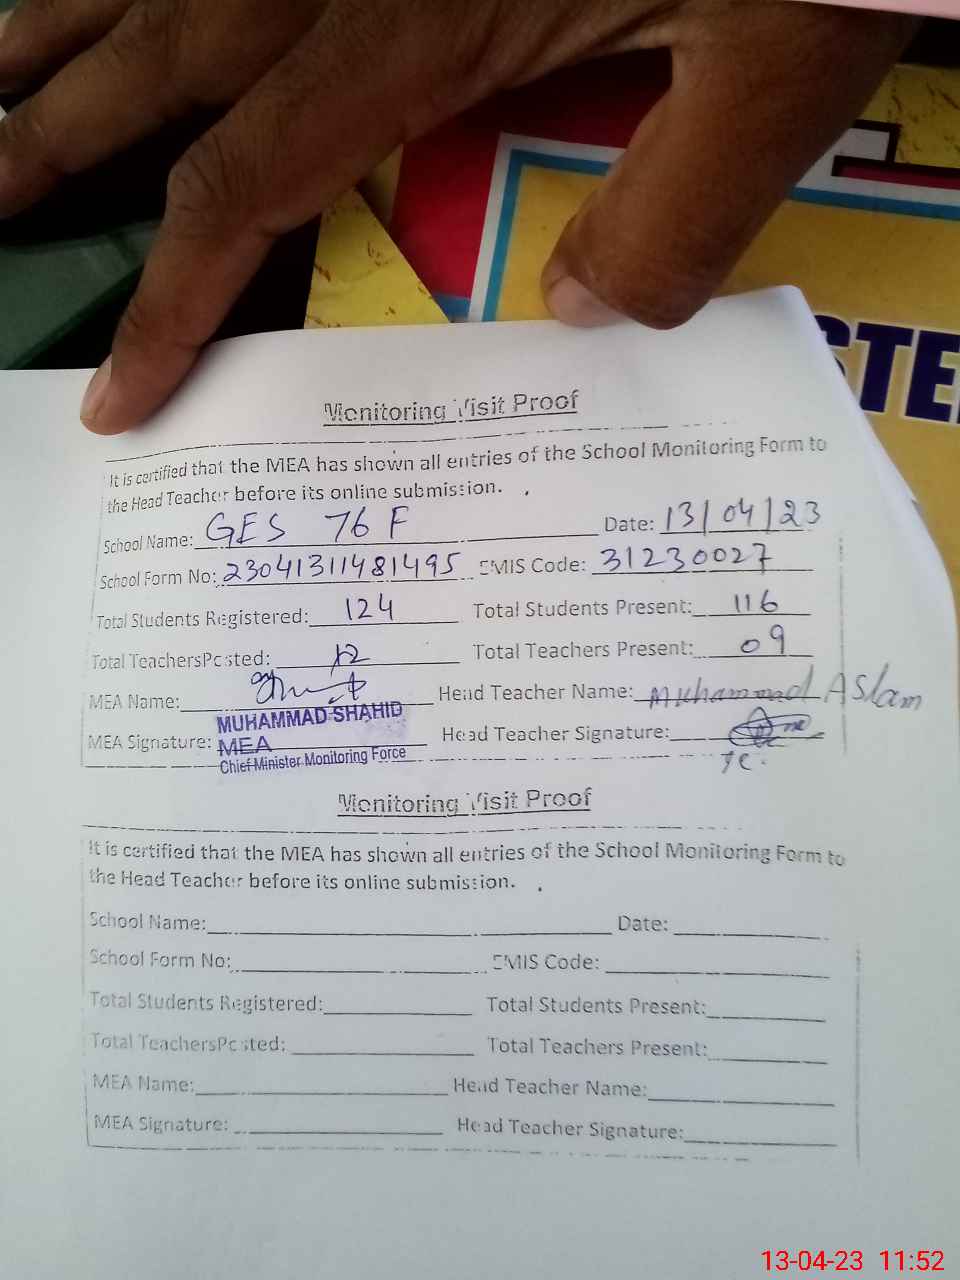 STE
Monitoring Visit Proof
It is certified that the MEA has shown all entries of the School Monitoring Form to
the Head Teacher before its online submission.
School Name: GES 76 F Date: 13/04/23
School Form No: 23041311481495 EMIS Code: 31230027
Total Students Registered: 124 Total Students Present: 116
Total TeachersPosted: 12 Total Teachers Present: 09
MEA Name: Head Teacher Name: Muhammad ASlam
MUHAMMAD SHAHID
MEA Signature: MEA Head Teacher Signature:
Chief Minister Monitoring Force
Monitoring Visit Proof
It is certified that the MEA has shown all entries of the School Monitoring Form to
the Head Teacher before its online submission.
School Name: Date:
School Form No: EMIS Code:
Total Students Registered: Total Students Present:
Total TeachersPosted: Total Teachers Present:
MEA Name: Head Teacher Name:
MEA Signature: Head Teacher Signature:
13-04-23 11:52